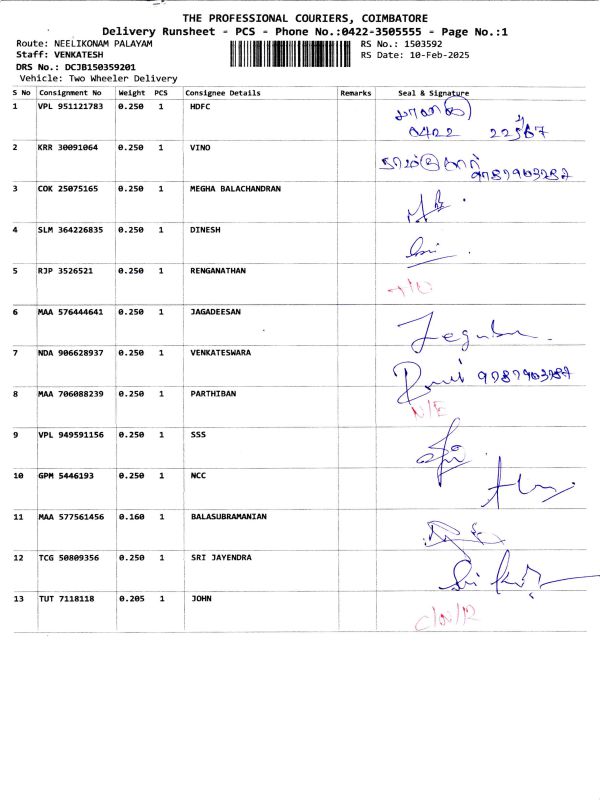 THE PROFESSIONAL COURIERS, COIMBATORE
Delivery Runsheet - PCS - Phone No.:0422-3505555 - Page No.:1
Route: NEELIKONAM PALAYAM RS No.: 1503592
Staff: VENKATESH RS Date: 10-Feb-2025
DRS No.: DCJB150359201
Vehicle: Two Wheeler Delivery
S No Consignment No Weight PCS Consignee Details Remarks Seal & Signature
1 VPL 951121783 0.250 1 HDFC
0422
2 KRR 30091064 0.250 1 VINO
9787903287
3 COK 25075165 0.250 1 MEGHA BALACHANDRAN
4 SLM 364226835 0.250 1 DINESH
5 RJP 3526521 0.250 1 RENGANATHAN
6 MAA 576444641 0.250 1 JAGADEESAN
7 NDA 906628937 0.250 1 VENKATESWARA
9787903287
8 MAA 706088239 0.250 1 PARTHIBAN N/E
9 VPL 949591156 0.250 1 SSS
10 GPM 5446193 0.250 1 NCC
11 MAA 577561456 0.160 1 BALASUBRAMANIAN
12 TCG 50809356 0.250 1 SRI JAYENDRA
13 TUT 7118118 0.205 1 JOHN